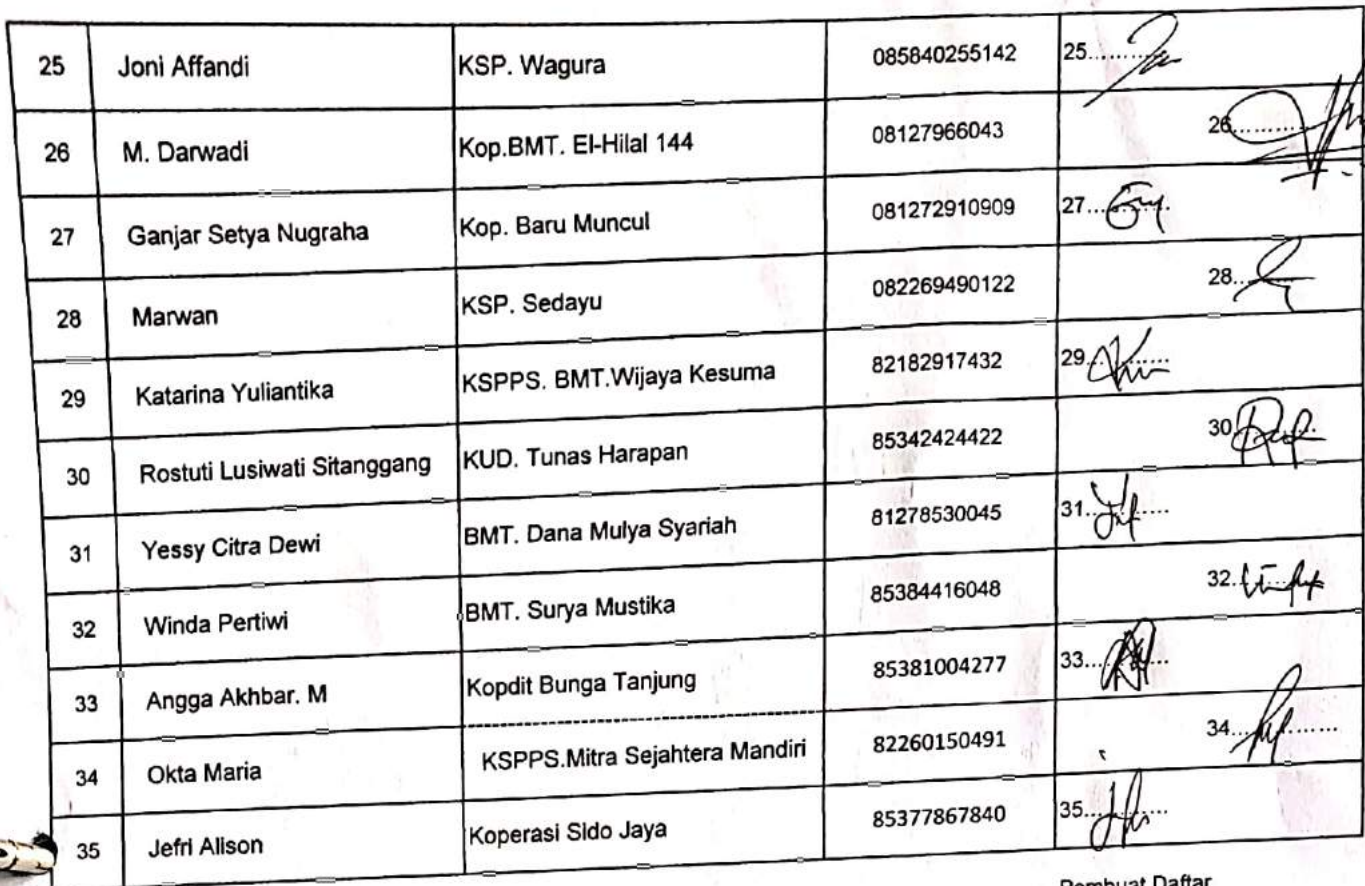 25 Joni Affandi KSP. Wagura 085840255142 25...........
26 M. Darwadi Kop.BMT. El-Hilal 144 08127966043 26...........
27 Ganjar Setya Nugraha Kop. Baru Muncul 081272910909 27...........
28 Marwan KSP. Sedayu 082269490122 28...........
29 Katarina Yuliantika KSPPS. BMT.Wijaya Kesuma 82182917432 29...........
30 Rostuti Lusiwati Sitanggang KUD. Tunas Harapan 85342424422 30...........
31 Yessy Citra Dewi BMT. Dana Mulya Syariah 81278530045 31...........
32 Winda Pertiwi BMT. Surya Mustika 85384416048 32...........
33 Angga Akhbar. M Kopdit Bunga Tanjung 85381004277 33...........
34 Okta Maria KSPPS.Mitra Sejahtera Mandiri 82260150491 34...........
35 Jefri Alison Koperasi Sido Jaya 85377867840 35...........
Pembuat Daftar